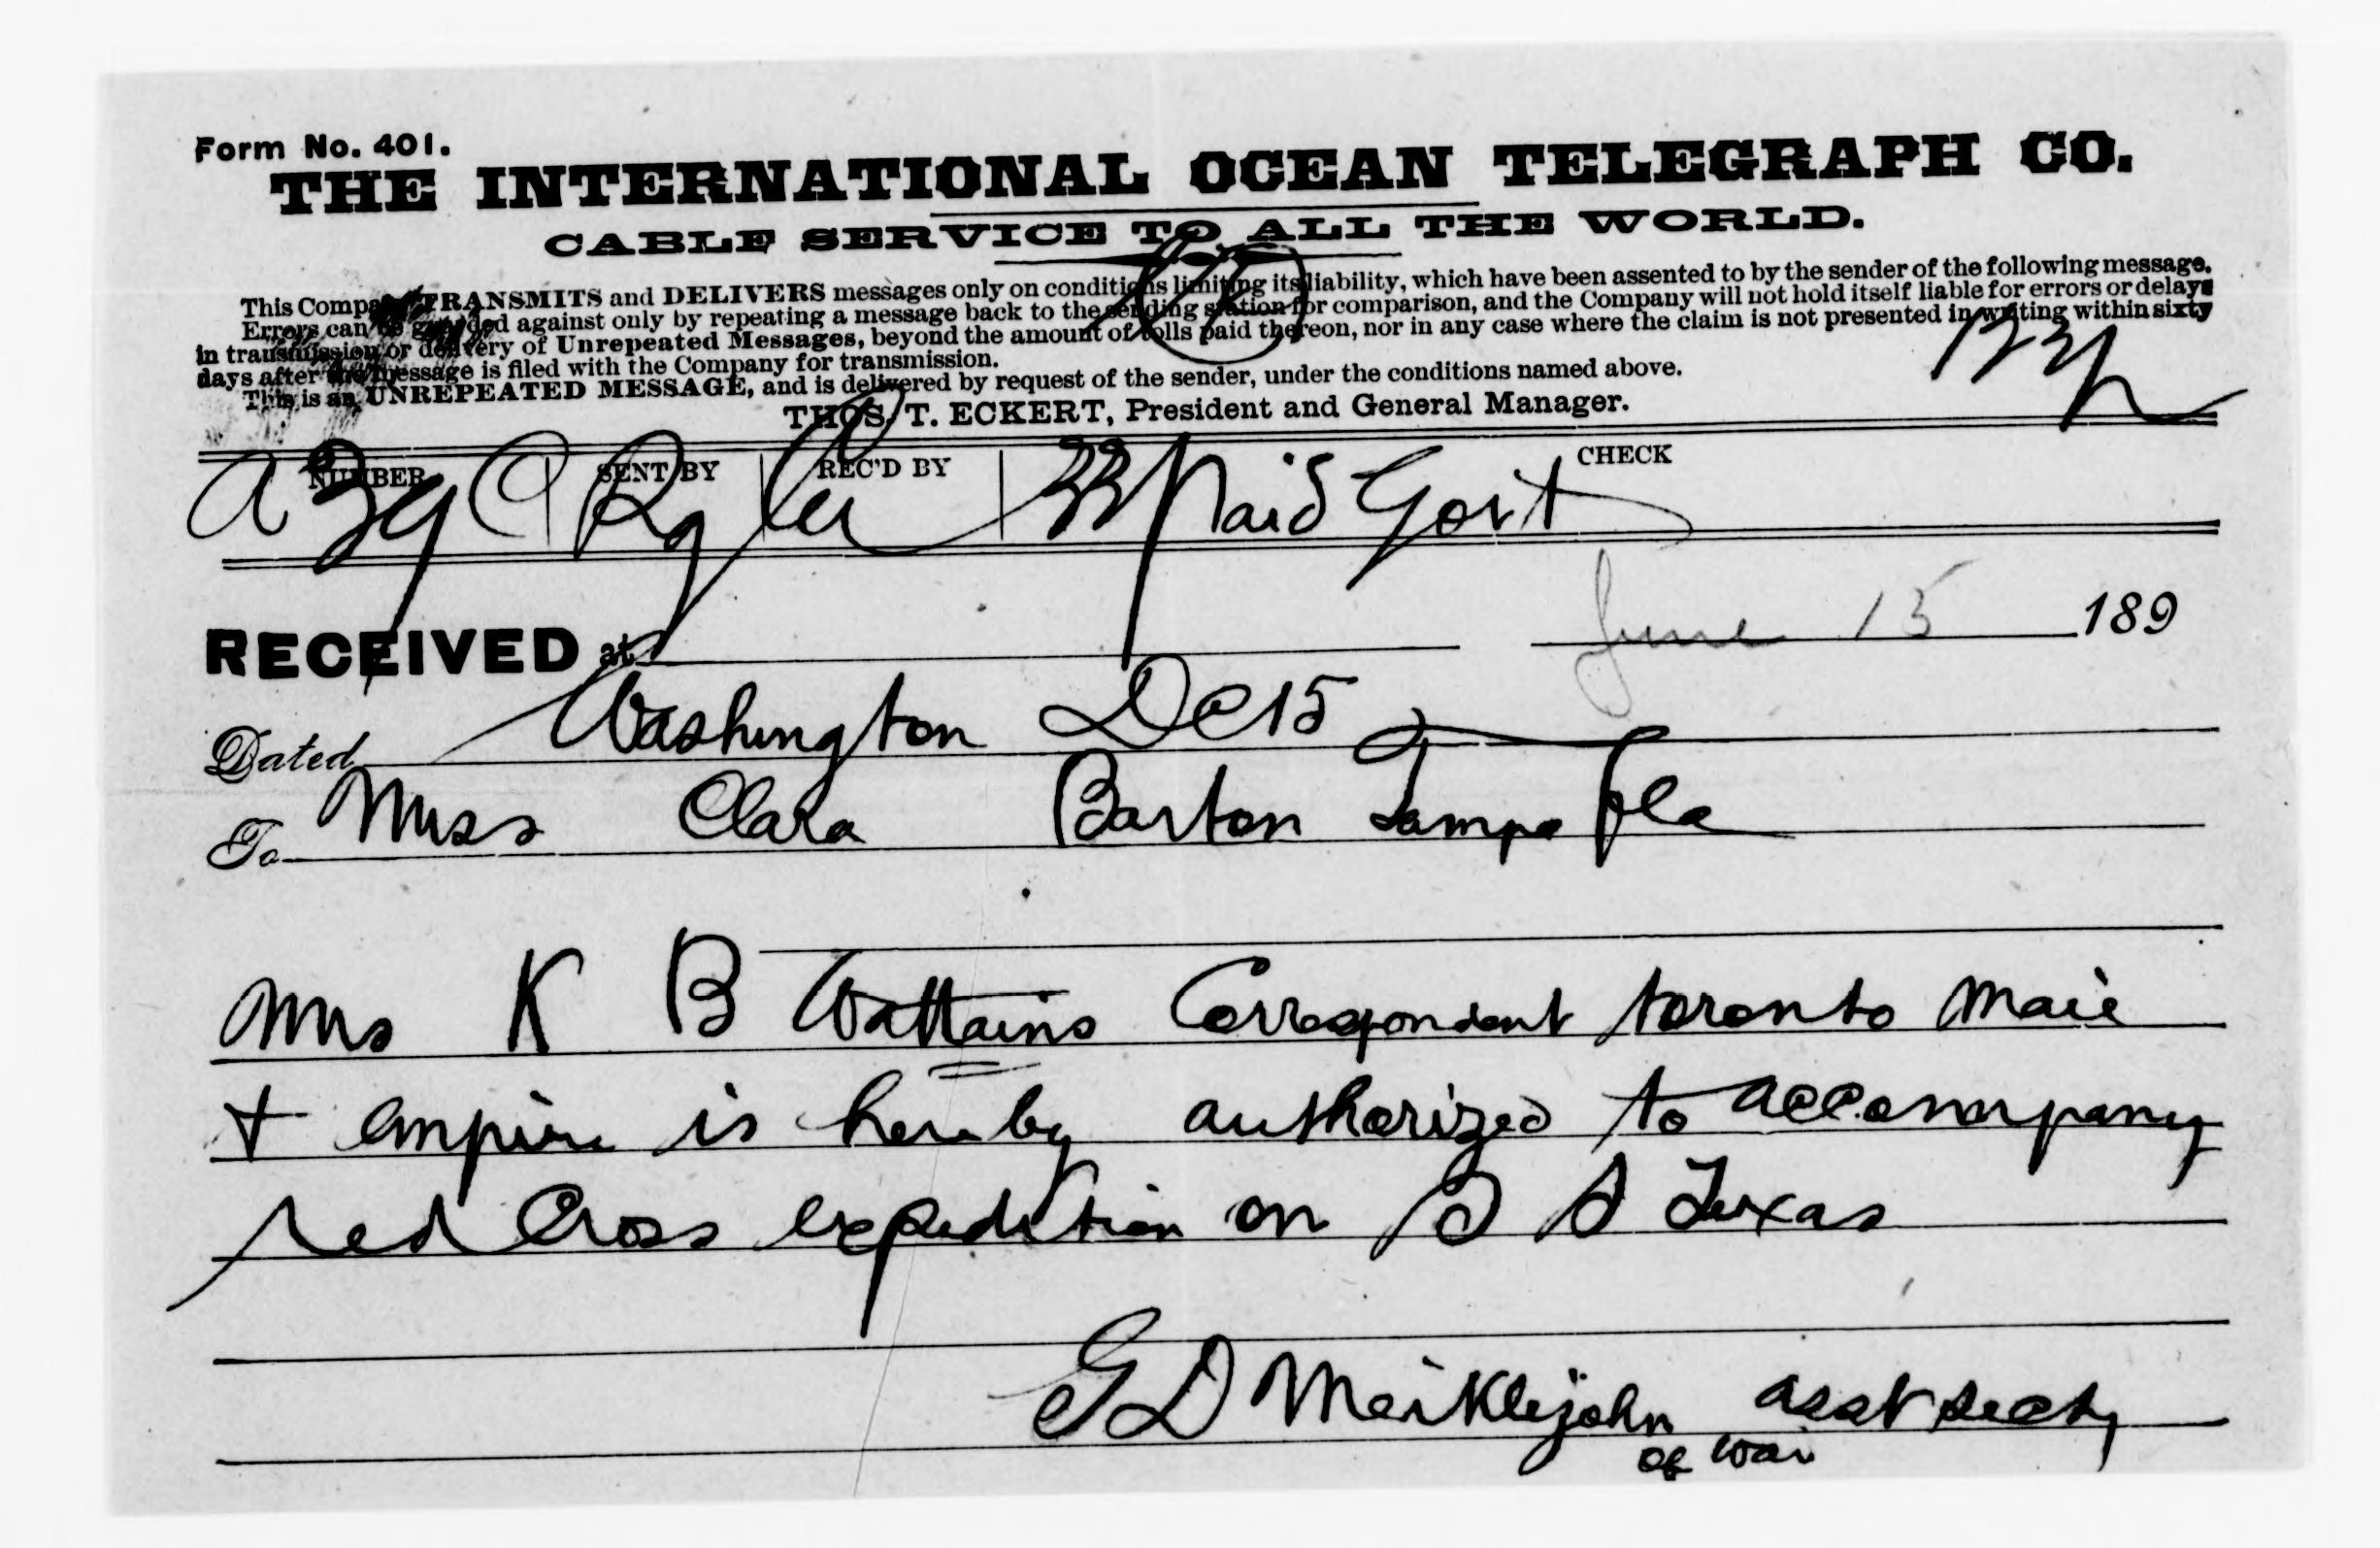 Form No. 401.
THE INTERNATIONAL OCEAN TELEGRAPH CO.
CABLE SERVICE TO ALL THE WORLD.
This Company TRANSMITS and DELIVERS messages only on conditions limiting its liability, which have been assented to by the sender of the following message.
Errors can be guarded against only by repeating a message back to the sending station for comparison, and the Company will not hold itself liable for errors or delays
in transmission or delivery of Unrepeated Messages, beyond the amount of tolls paid thereon, nor in any case where the claim is not presented in writing within sixty
days after the message is filed with the Company for transmission.
This is an UNREPEATED MESSAGE, and is delivered by request of the sender, under the conditions named above.
THOS. T. ECKERT, President and General Manager.
NUMBER SENT BY REC'D BY CHECK
33 Paid Govt
RECEIVED at June 15 189
Dated Washington DC 15
To Miss Clara Barton Tampa Fla
Mrs K B Wattains Correspondent toronto Mail
+ Empire is hereby authorized to accompany
red Cross expedition on S S Texas
G D Meiklejohn asst secty
of war